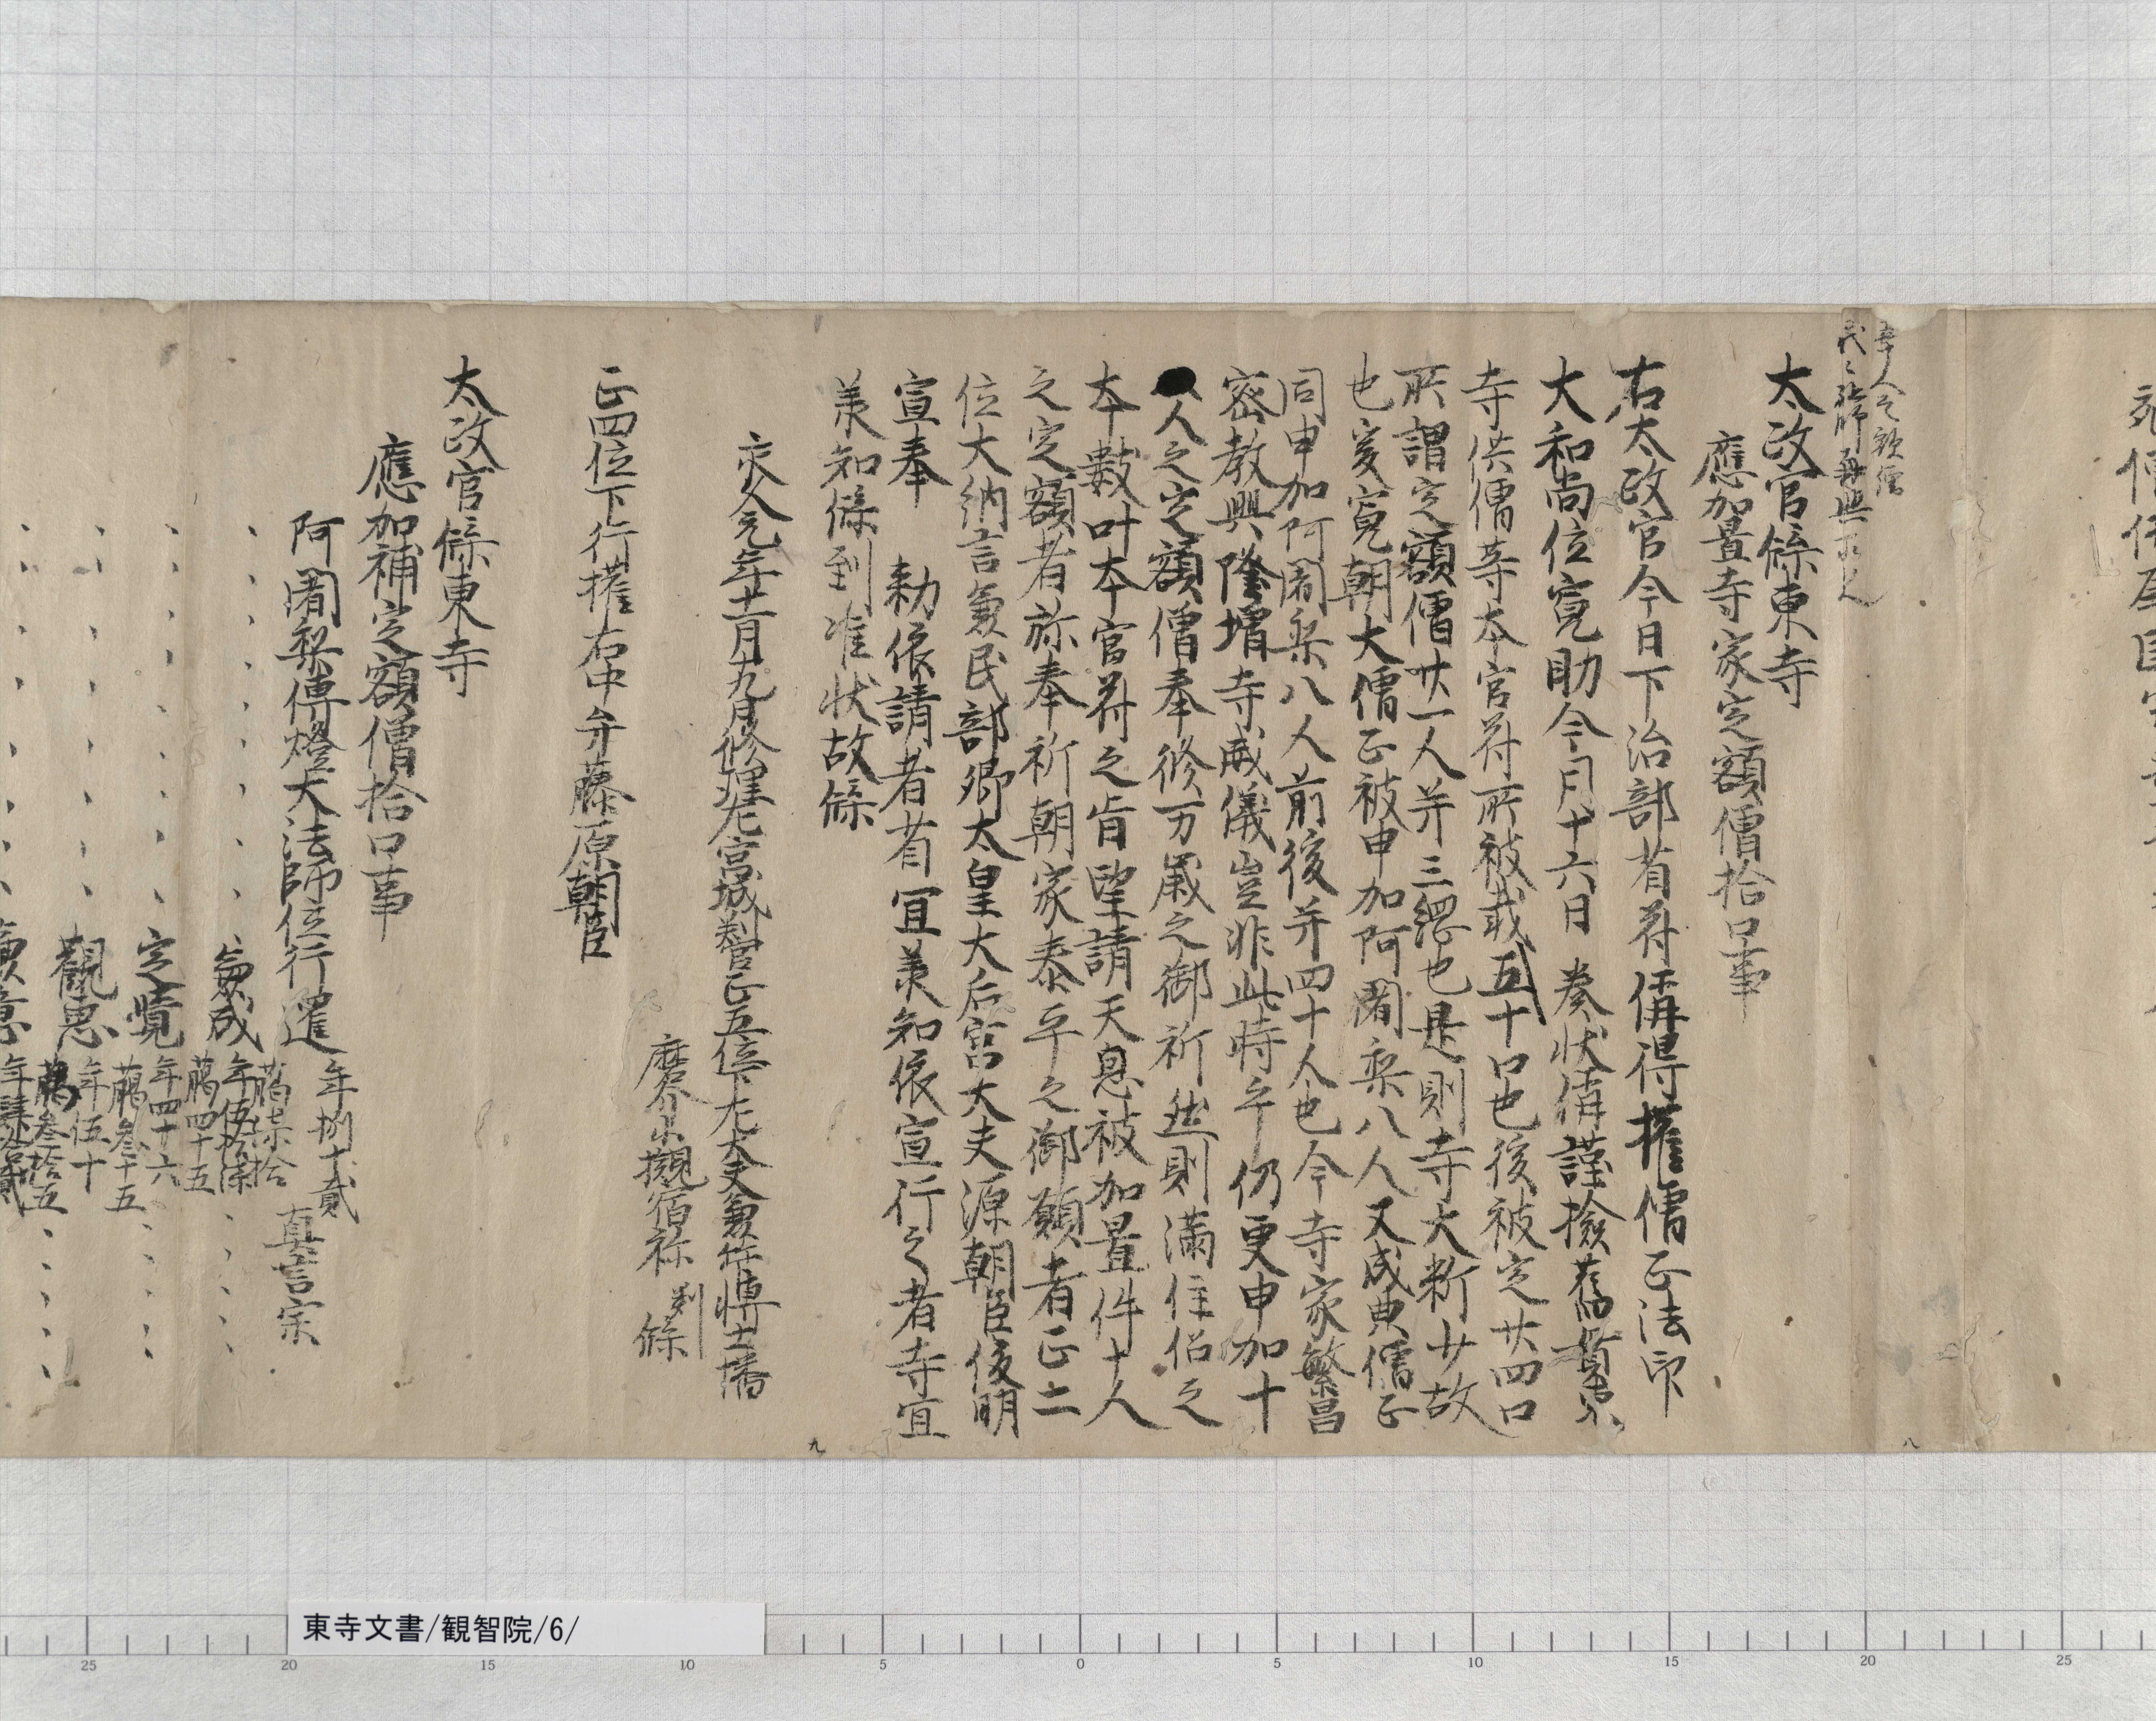 太政官牒東寺
應加置寺家定額僧拾口事
右太政官今日下治部省符偁得権僧正法印
大和尚位寛助今月十六日奏状偁謹撿舊貫東
寺供僧等本官符所被載五十口也後被定廿四口
所謂定額僧廿一人并三綱也是則寺大粁少故
也爰寛朝大僧正被申加阿闍梨八人又成典僧正
同申加阿闍梨八人前後并四十人也今寺家繁昌
密教興隆増寺威儀豈非此時乎仍更申加十
人之定額僧奉修万歳之御祈然則満住侶之
本數叶本官符之旨望請天恩被加置件十人
之定額者弥奉祈朝家泰平之御願者正二
位大納言兼民部卿太皇大后宮大夫源朝臣俊明
宣奉 勅依請者省宜羕知依宣行之者寺宜
羕知牒到准状故牒
永久元年十二月九日修理左宮城判官正五位下左大史兼算博士播
磨介小槻宿祢 判 牒
正四位下行権右中弁藤原朝臣
太政官牒東寺
應加補定額僧拾口事
阿闍梨傳燈大法師位行暹 年捌十貳 﨟柒拾 真言宗
、、、、、、兼成 年伍拾柒 﨟四十五 、、、
、、、、、、定覺 年四十六 﨟叁十五 、、、
、、、、、、觀惠 年伍十 﨟叁拾五 、、、
九
八
東寺文書/観智院/6/
25 20 15 10 5 0 5 10 15 20 25